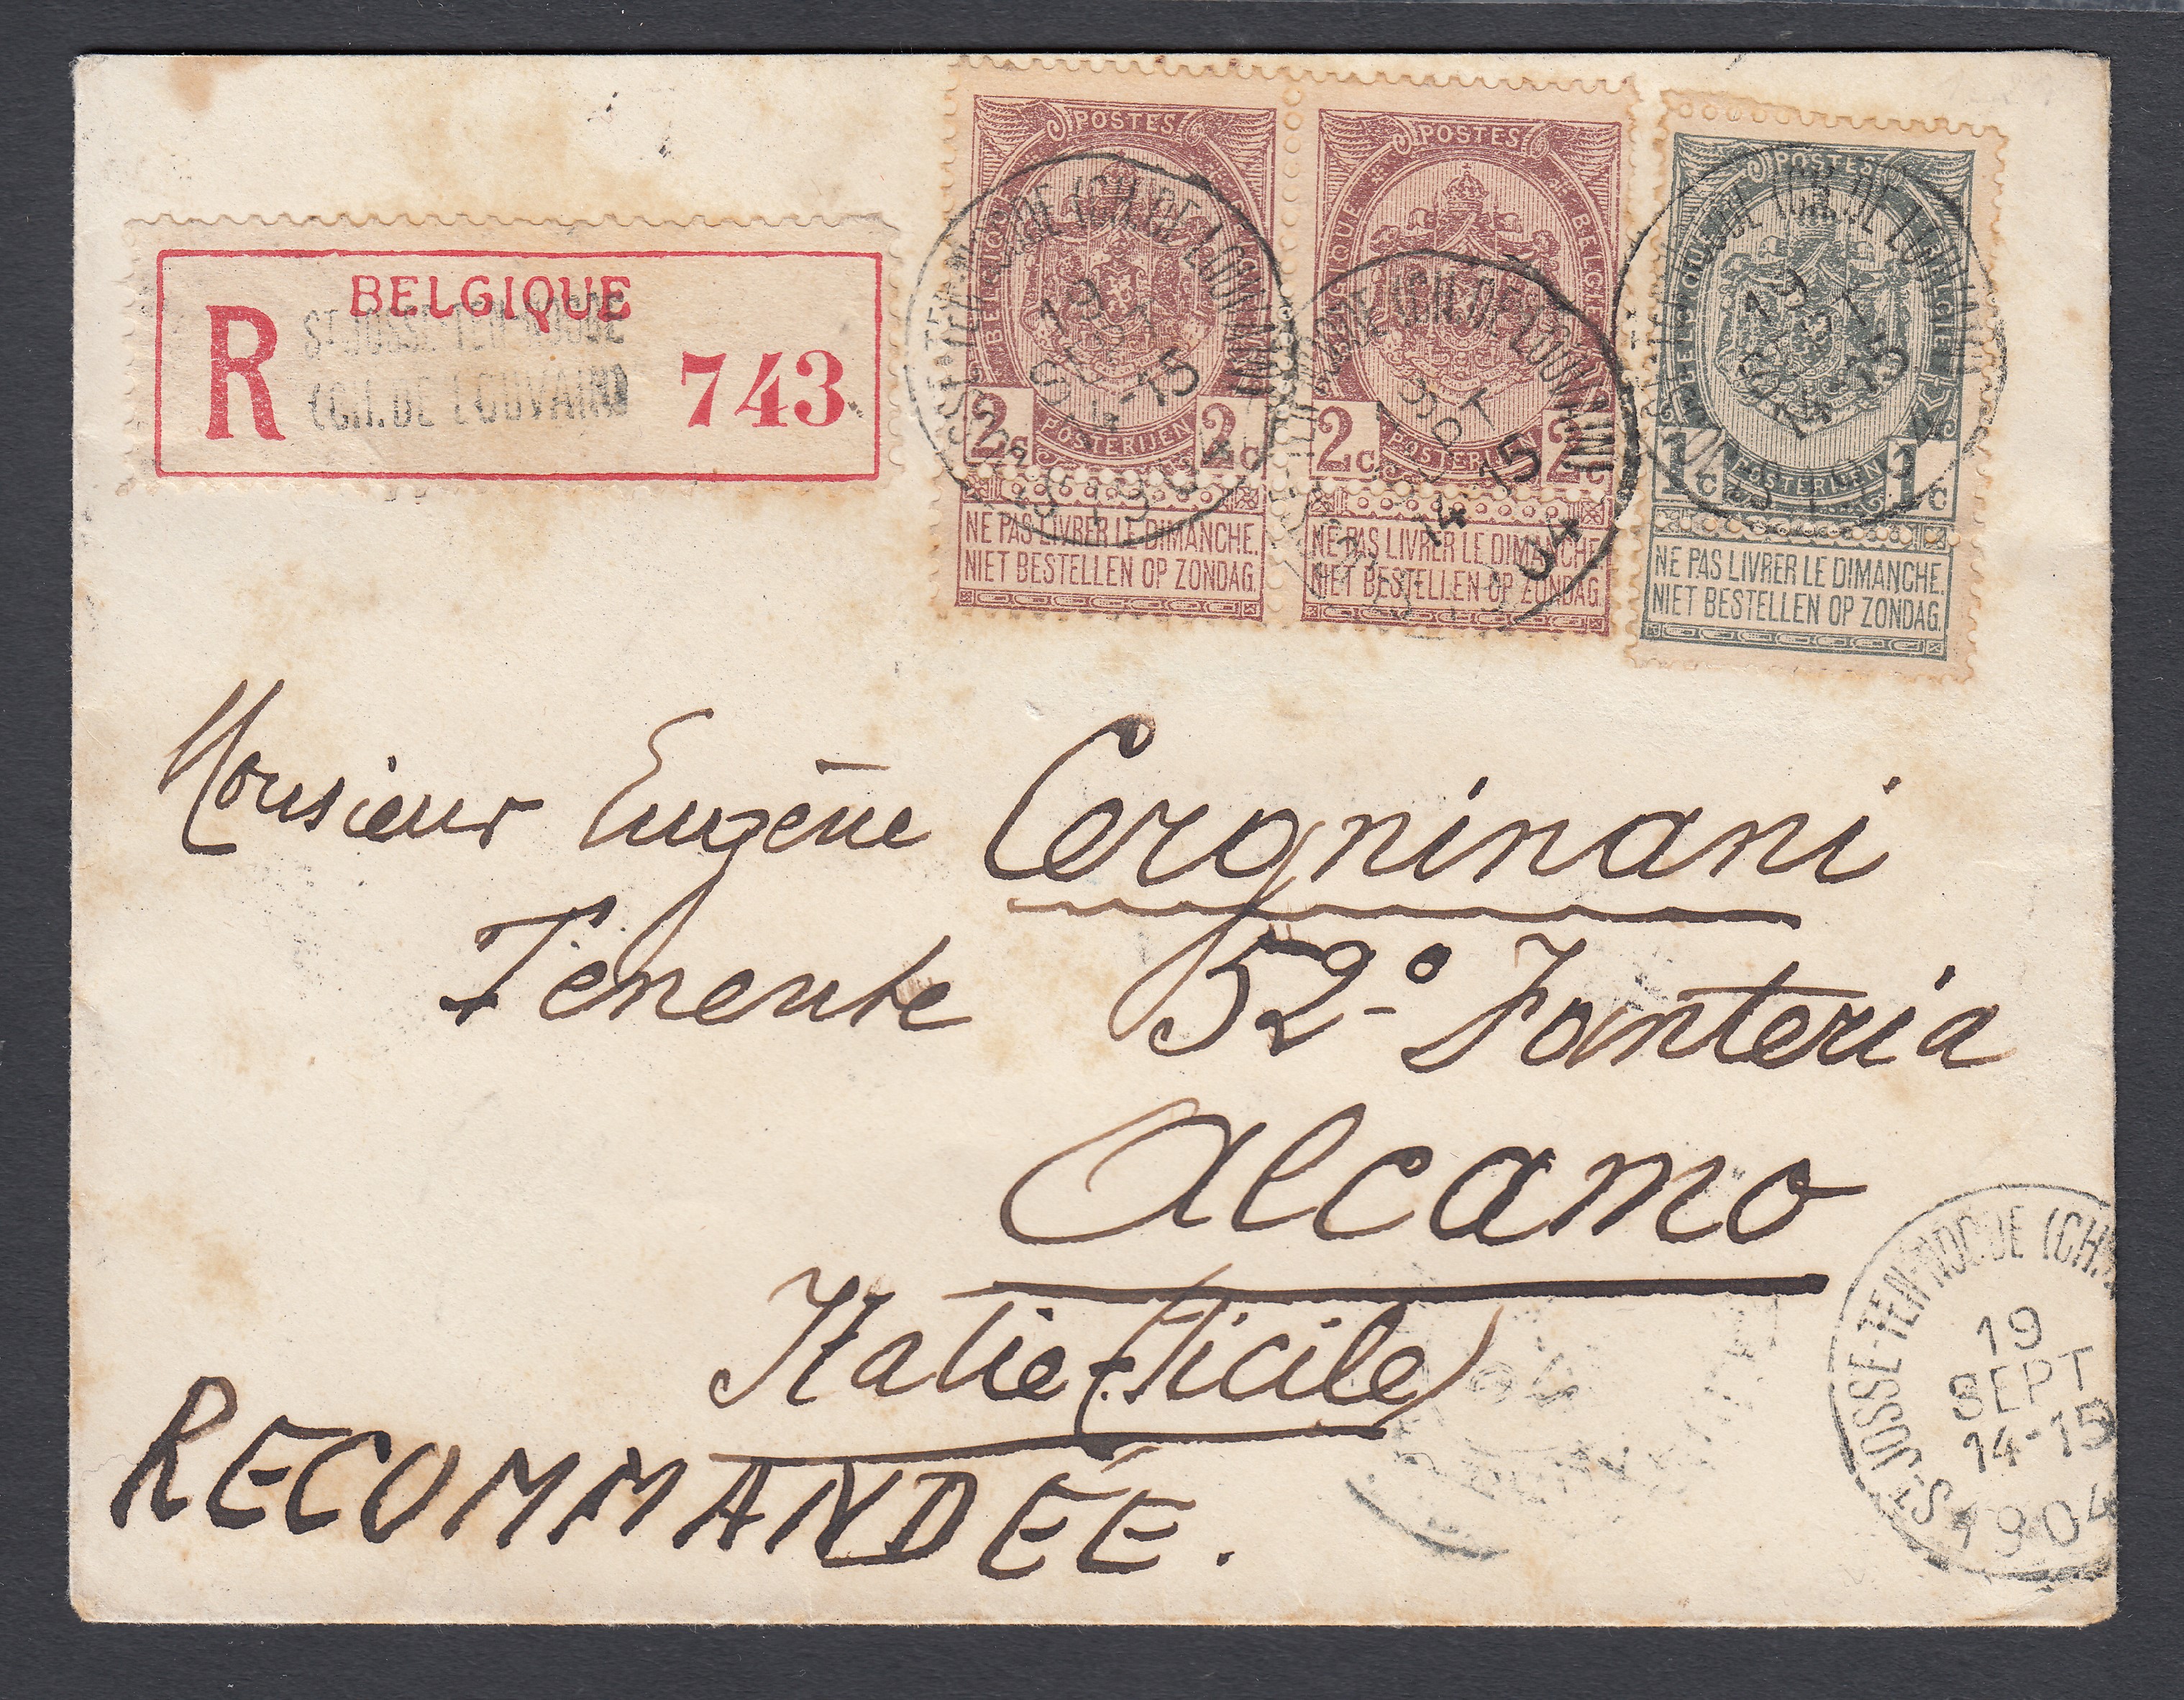 BELGIQUE
R
ST JOSSE-TEN-NOODE
(CH. DE LOUVAIN)
743
POSTES
BELGIQUE
BELGIË
2c 2c
POSTERIJEN
NE PAS LIVRER LE DIMANCHE.
NIET BESTELLEN OP ZONDAG.
POSTES
BELGIQUE
BELGIË
2c 2c
POSTERIJEN
NE PAS LIVRER LE DIMANCHE.
NIET BESTELLEN OP ZONDAG.
POSTES
BELGIË
1c 1c
POSTERIJEN
NE PAS LIVRER LE DIMANCHE.
NIET BESTELLEN OP ZONDAG.
Monsieur Eugène Cergninani
Tenente 52º Fanteria
Alcamo
Italie (Sicile)
RECOMMANDÉE.
ST-JOSSE-TEN-NOODE (CH.
19
SEPT
14-15
1904